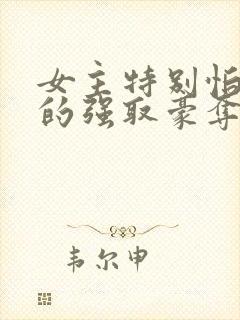 女主特别怕
的强取豪夺
韦尔申